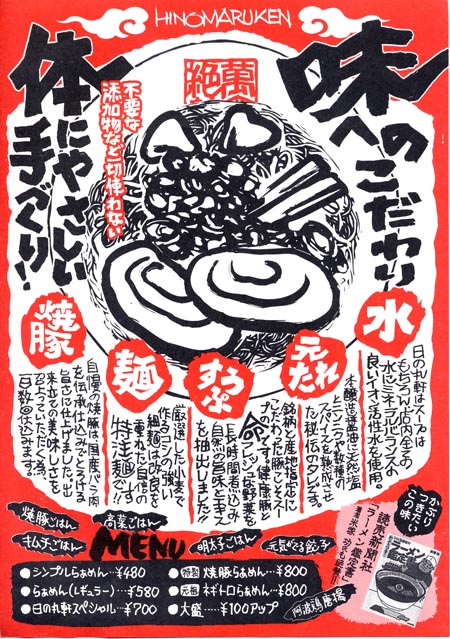 HINOMARUKEN
味へのこだわり
体にやさしい
手づくり!
不要な
添加物など一切使わない
水
日の丸軒はスープは
もちろん店内全ての
水にミネラルバランスの
良いイオン活性水を使用。
元たれ
本醸造醤油に天然塩
た秘伝のタレです。
すうぷ
銘柄と産地指定に
こだわった豚こつスープ
命
長時間煮込み
自然の旨味とエキス
を抽出しました!!
麺
厳選した小麦で
作るコシの強い
細麺は
特注麺で!!
焼豚
自慢の焼豚は、国産バラ肉
を伝承仕込みでとろける
旨さに仕上げました。出
来立ての美味しさを
味わっていただく為、
日数回仕込みます。
焼豚ごはん
高菜ごはん
キムチごはん
MENU
明太子ごはん
元気がでる餃子
●シンプルらぁめん…¥480
●らぁめん(レギュラー)…¥580
●日の丸軒スペシャル…¥700
●特製 焼豚らぁめん…¥800
●元祖 ネギトロらぁめん…¥800
●大盛……¥100アップ
阿波鶏唐揚
かぶり
つきたい
この味
読売新聞社
「ラーメン鑑定書」
ラーメン